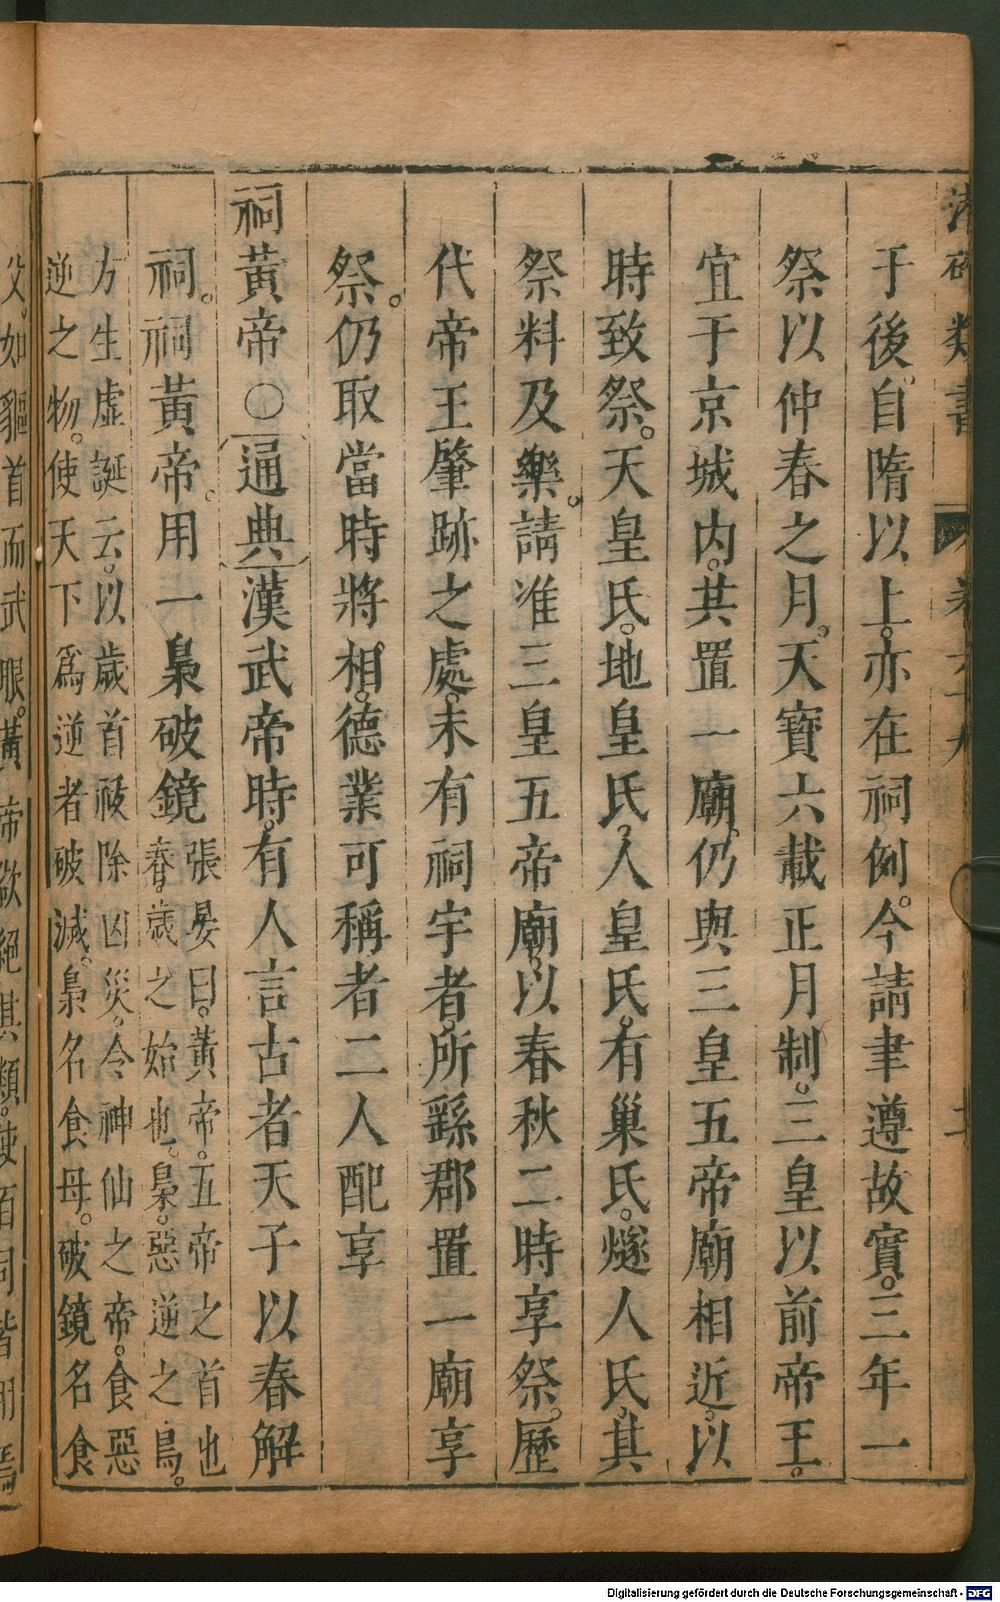 潛確類書 卷六十九 二
于後自隋以上亦在祠例。今請聿遵故實。三年一
祭以仲春之月。天寶六載正月制。三皇以前帝王。
宜于京城內。其置一廟。仍與三皇五帝廟相近。以
時致祭。天皇氏。地皇氏。人皇氏。有巢氏。燧人氏。其
祭料及樂。請准三皇五帝廟。以春秋二時享祭。歷
代帝王肇跡之處。未有祠宇者。所繇郡置一廟享
祭。仍取當時將相。德業可稱者二人配享
祠黃帝○通典漢武帝時。有人言古者天子以春解
祠。祠黃帝。用一梟破鏡張晏曰。黃帝。五帝之首也
春歲之始也。梟。惡逆之鳥。
方生虛誕云。以歲首祓除凶災。令神仙之帝。食惡
逆之物。使天下為逆者破滅。梟名食母。破鏡名食
父。如貙首而武眼。黃帝欲絕其類。使百祠皆用焉
Digitalisierung gefördert durch die Deutsche Forschungsgemeinschaft - DFG